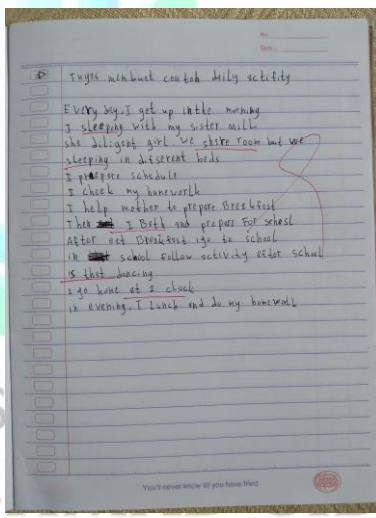 No.
Date.
Tugas membuat contoh daily actifity
Every day, I get up in the morning
I sleeping with my sister
she diligent girl. we share room but we
sleeping in different beds
I prepare schedule
I check my homework
I help mother to prepare Breakfast
Then I Bath and prepare For school
After eat Breakfast i go to school
in school follow activity after school
is that dancing
I go home at 2 clock
in evening, I Lunch and do my homework
You'll never know till you have tried